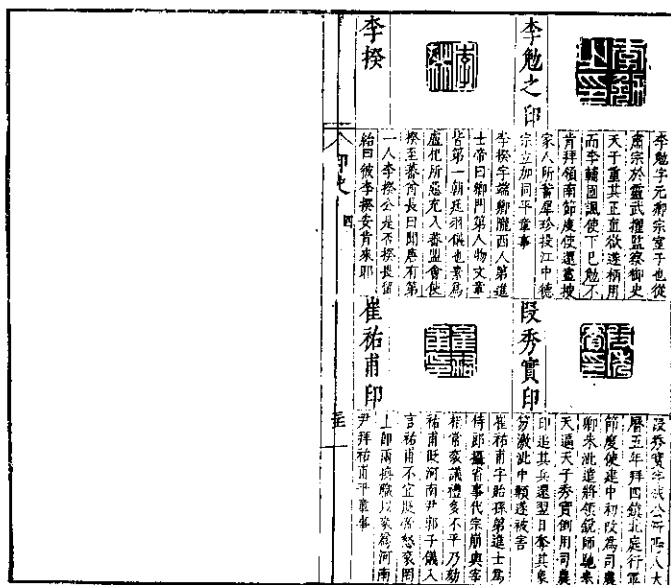 李勉之印
李勉字元卿宗室子也從
肅宗於靈武擢監察御史
天子重其正直欲遂柄用
而李輔國諷使下己勉不
肯拜嶺南節度使還盡搜
家人所蓄犀珍投江中德
宗立加同平章事
李揆
李揆字端卿隴西人第進
士帝曰卿門第人物文章
皆第一朝廷羽儀也素為
盧杞所惡充入蕃盟會使
揆至蕃酋長曰聞唐有第
一人李揆公是否揆畏留
紿曰彼李揆安肯來耶
段秀實印
段秀實字成公
曆五年拜四鎮北庭行軍
節度使建中初改為司農
卿朱泚遣將領銳師馳來
天逼天子秀實倒用司農
印追其兵還翌日奪其象
笏激泚中顙遂被害
崔祐甫印
崔祐甫字貽孫第進士為
侍郎攝省事代宗崩與宰
相常袞議禮多不平乃劾
祐甫貶河南尹郭子儀入
言祐甫不宜貶帝怒袞罔
上即兩換職以袞為河南
尹拜祐甫平章事
印史
四